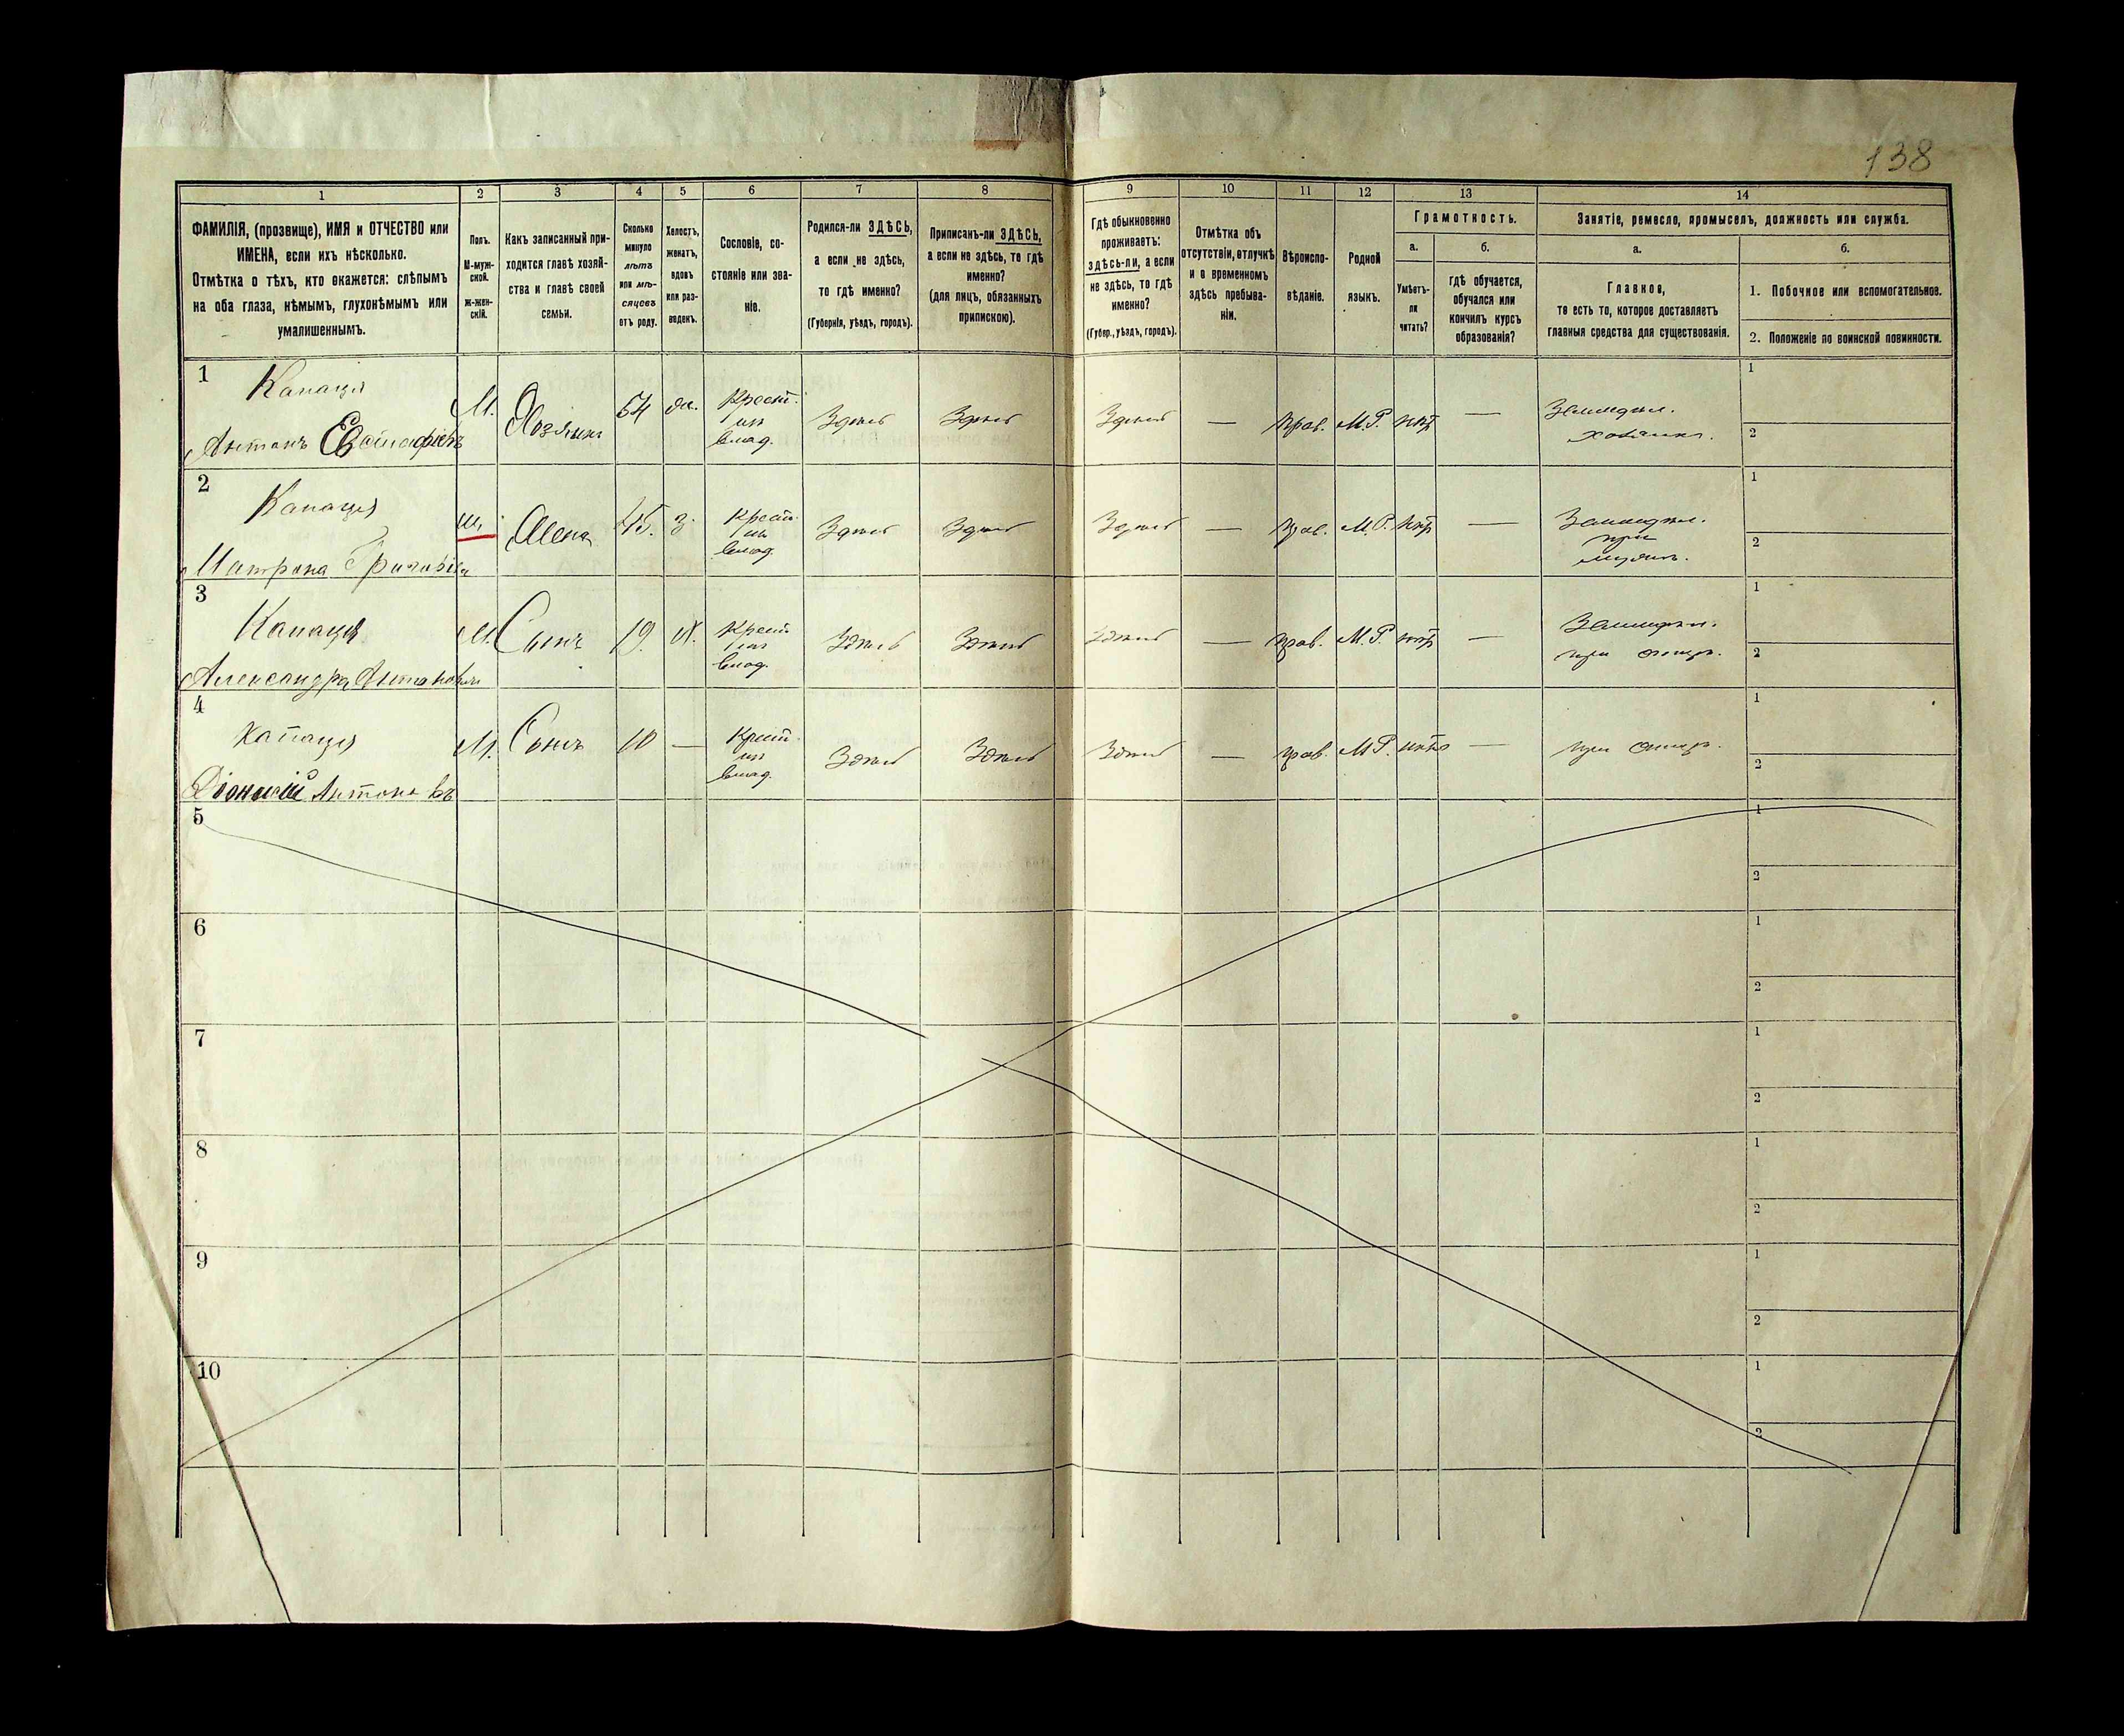 138
1 2 3 4 5 6 7 8 9 10 11 12 13 14
ФАМИЛІЯ, (прозвище), ИМЯ и ОТЧЕСТВО или
ИМЕНА, если ихъ нѣсколько.
Отмѣтка о тѣхъ, кто окажется: слѣпымъ
на оба глаза, нѣмымъ, глухонѣмымъ или
умалишеннымъ.
Полъ.
М-муж-
ской.
ж-жен-
скій.
Какъ записанный при-
ходится главѣ хозяй-
ства и главѣ своей
семьи.
Сколько
минуло
лѣтъ
или мѣ-
сяцевъ
отъ роду.
Холостъ,
женатъ,
вдовъ
или раз-
веденъ.
Сословіе, со-
стояніе или зва-
ніе.
Родился-ли ЗДѢСЬ,
а если не здѣсь,
то гдѣ именно?
(Губернія, уѣздъ, городъ).
Приписанъ-ли ЗДѢСЬ,
а если не здѣсь, то гдѣ
именно?
(для лицъ, обязанныхъ
припискою).
Гдѣ обыкновенно
проживаетъ:
здѣсь-ли, а если
не здѣсь, то гдѣ
именно?
(Губер., уѣздъ, городъ).
Отмѣтка объ
отсутствіи, отлучкѣ
и о временномъ
здѣсь пребыва-
ніи.
Вѣроиспо-
вѣданіе.
Родной
языкъ.
Грамотность.
а.
Умѣетъ-
ли
читать?
б.
гдѣ обучается,
обучался или
кончилъ курсъ
образованія?
Занятіе, ремесло, промыселъ, должность или служба.
а.
Главное,
то есть то, которое доставляетъ
главныя средства для существованія.
б.
1. Побочное или вспомогательное.
2. Положеніе по воинской повинности.
1 Капаця
Антонъ М. Хозяинъ 54 Крест. Здѣсь Здѣсь Здѣсь — Прав. М.Р. нѣтъ — 1
из
влад. 2
2 Капаця
Матрона ж. Жена 45. з. Крест. Здѣсь Здѣсь Здѣсь — прав. М.Р. нѣтъ — 1
из при
влад. 2
3 Капаця
Александра М. Сынъ 19. Х. Крест. Здѣсь Здѣсь Здѣсь — прав. М.Р. нѣтъ — 1
из при отцѣ.
влад. 2
4 Капаця
Діонисій М. Сынъ 10 — Крест. Здѣсь Здѣсь Здѣсь — прав. М.Р. нѣтъ — при отцѣ. 1
из
влад. 2
5 1
2
6 1
2
7 1
2
8 1
2
9 1
2
10 1
2